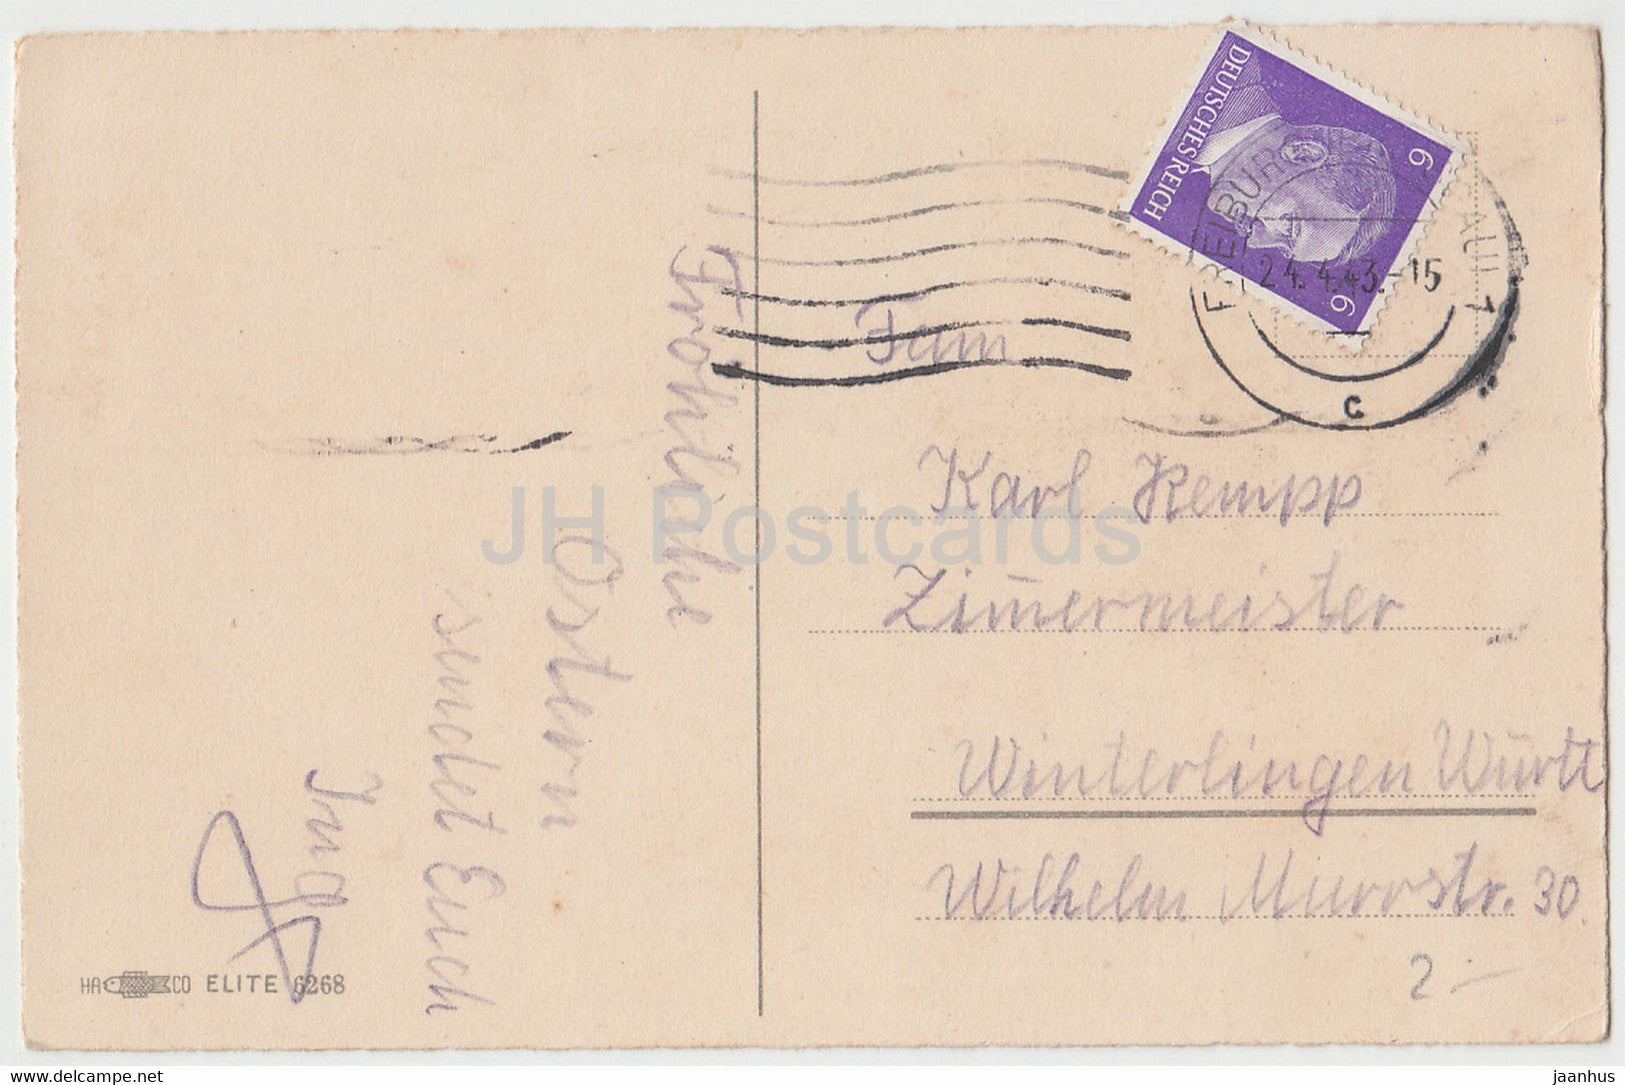 Fröhliche
Ostern
sendet Euch
HACO ELITE 6268
DEUTSCHES REICH
6
6
FREIBURG
24.4.43.-15
1
c
Fam
Karl Kempp
Zimermeister
Winterlingen Württ
Wilhelm Murrstr. 30
2 -
JH Postcards
jaanhus